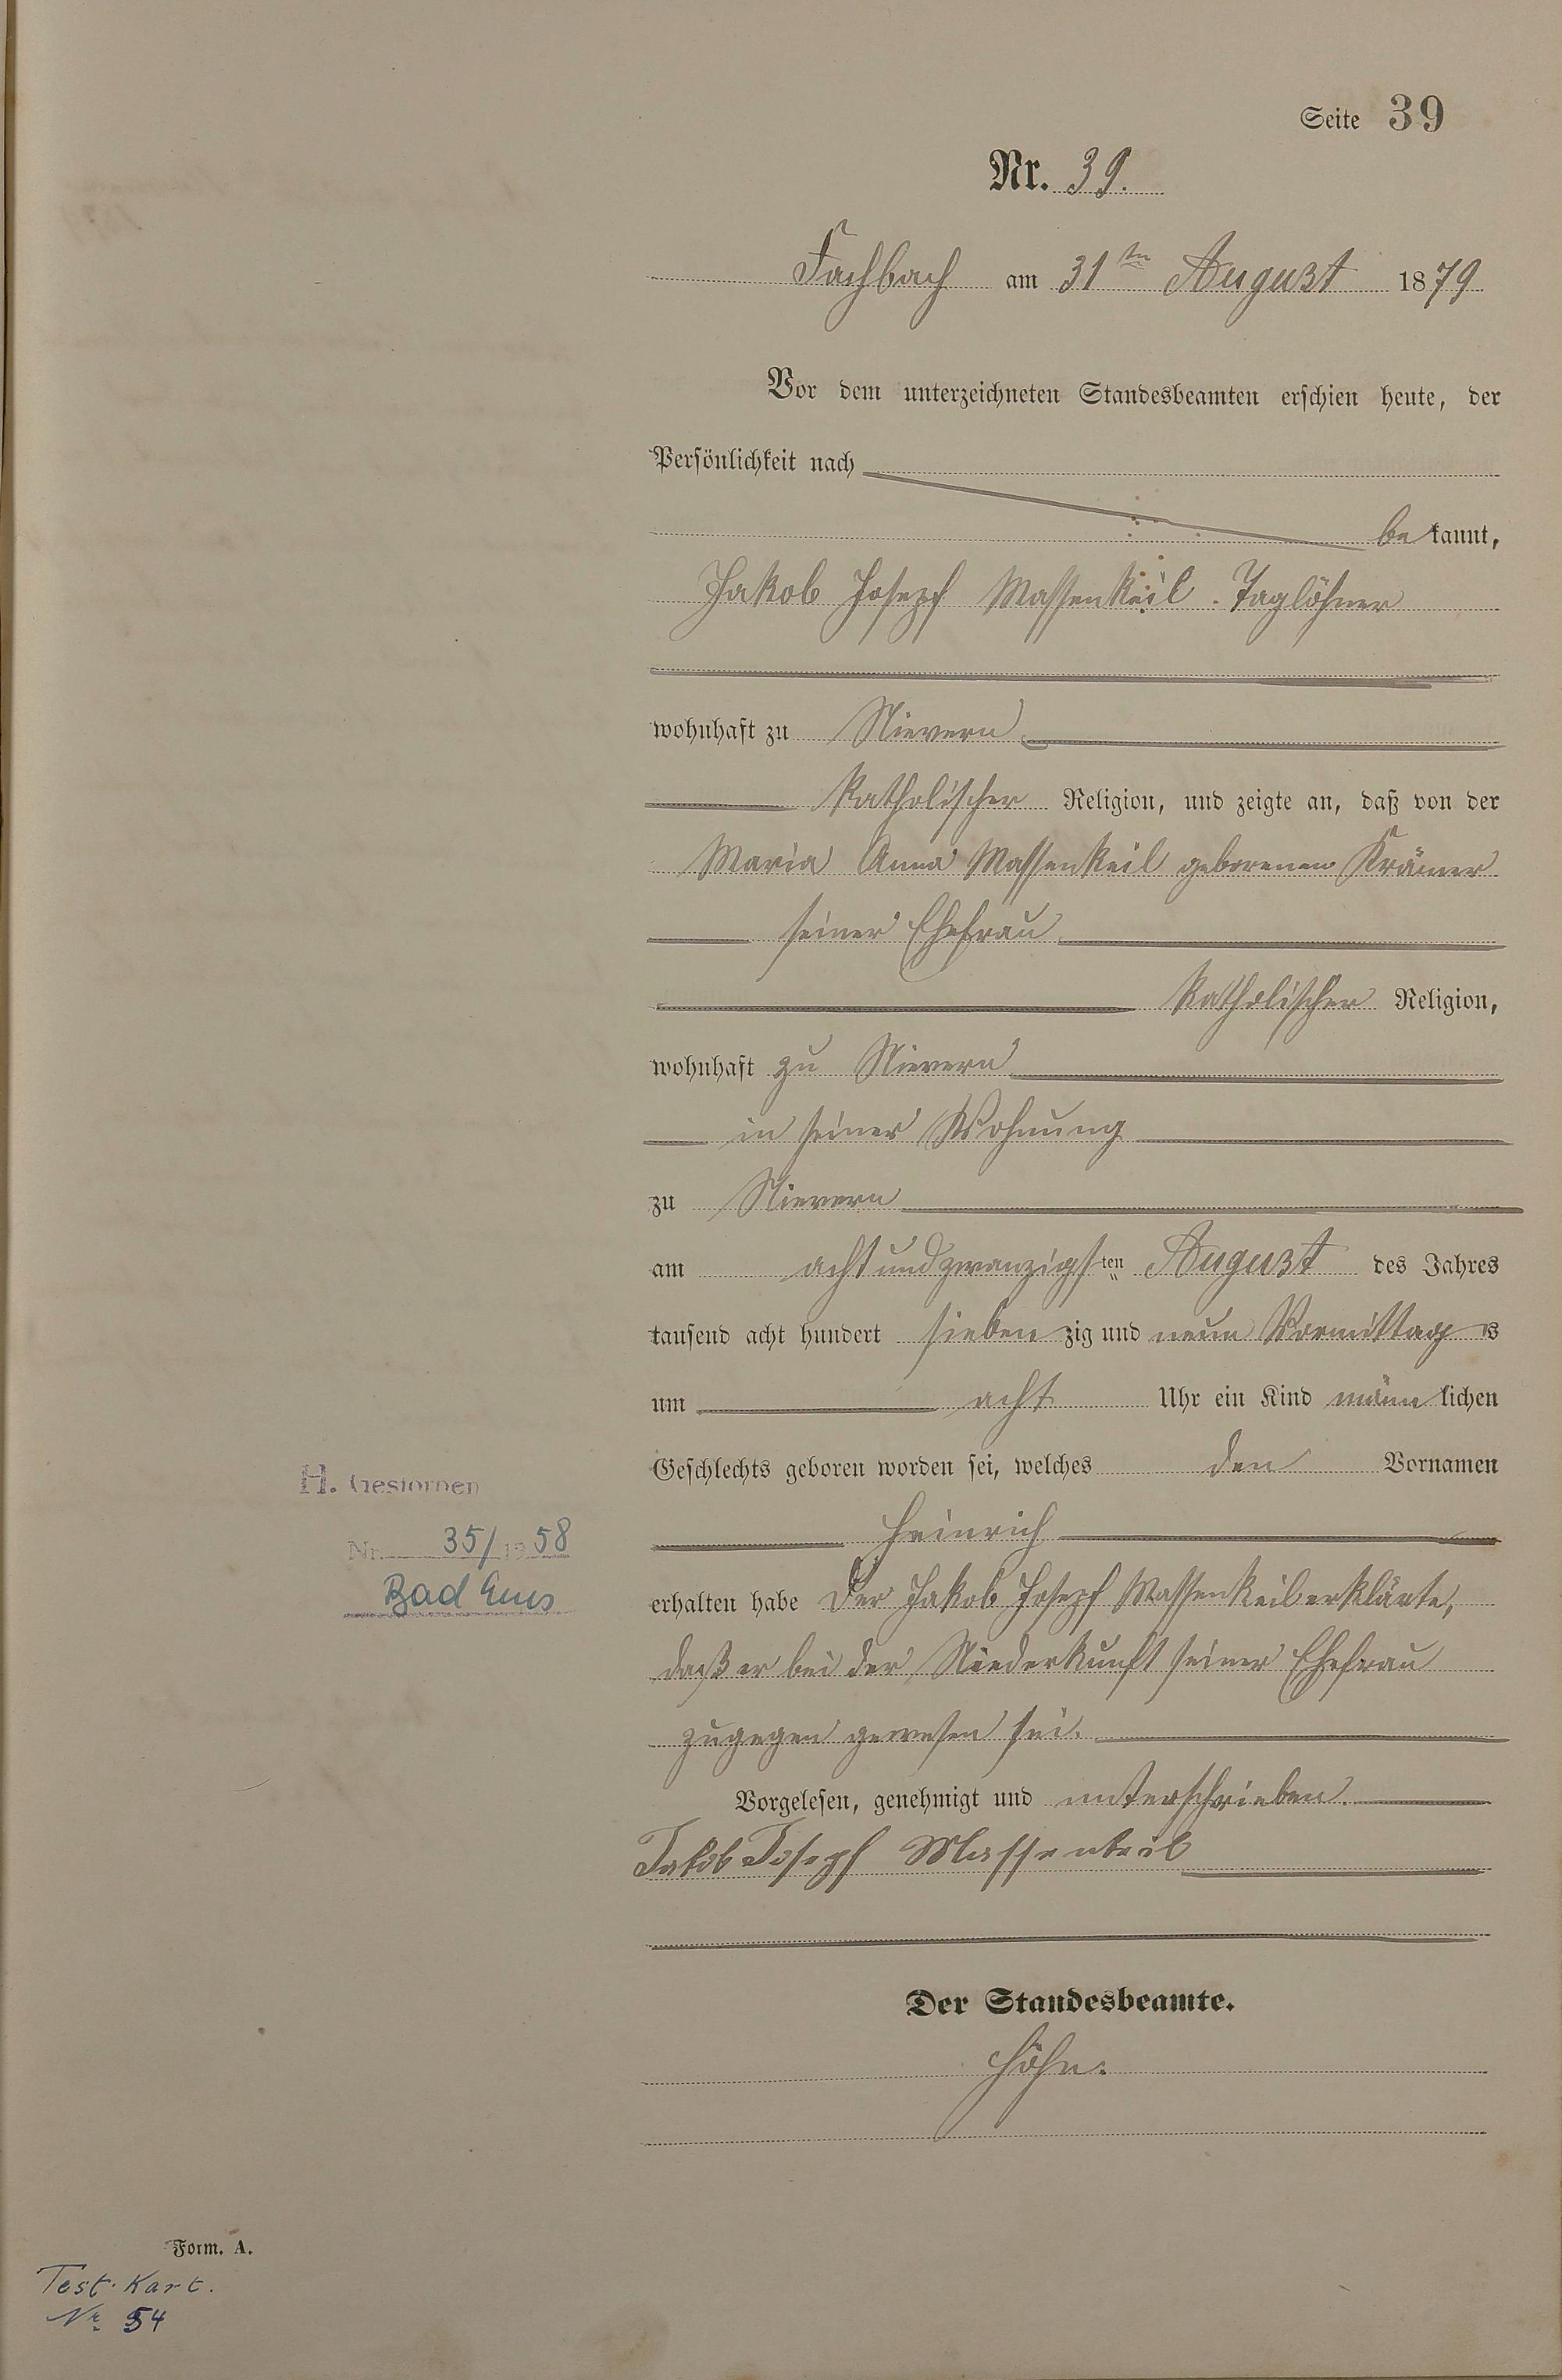 Seite 39
Nr. 39.
Fachbach am 31ten August 1879
Vor dem unterzeichneten Standesbeamten erschien heute, der
Persönlichkeit nach
bekannt,
Jakob Josepf Massenkeil. Taglöhner
wohnhaft zu Nievern
katholischer Religion, und zeigte an, daß von der
Maria Anna Massenkeil geborenen Krämer
seiner Ehefrau
katholischer Religion,
wohnhaft zu Nievern
in seiner Wohnung
zu Nievern
am achtundzwanzigsten August des Jahres
tausend acht hundert siebenzig und neun Vormittags
um acht Uhr ein Kind männlichen
Geschlechts geboren worden sei, welches den Vornamen
Heinrich
erhalten habe Der Jakob Josepf Massenkeil erklärte,
daß er bei der Niederkunft seiner Ehefrau
zugegen gewesen sei.
Vorgelesen, genehmigt und unterschrieben.
Jakob Joseph Massenkeil
Der Standesbeamte.
Höhn.
H. Gestorben
Nr. 35/1958
Bad Ems
Form. A.
Test. Kart.
Nr. 54